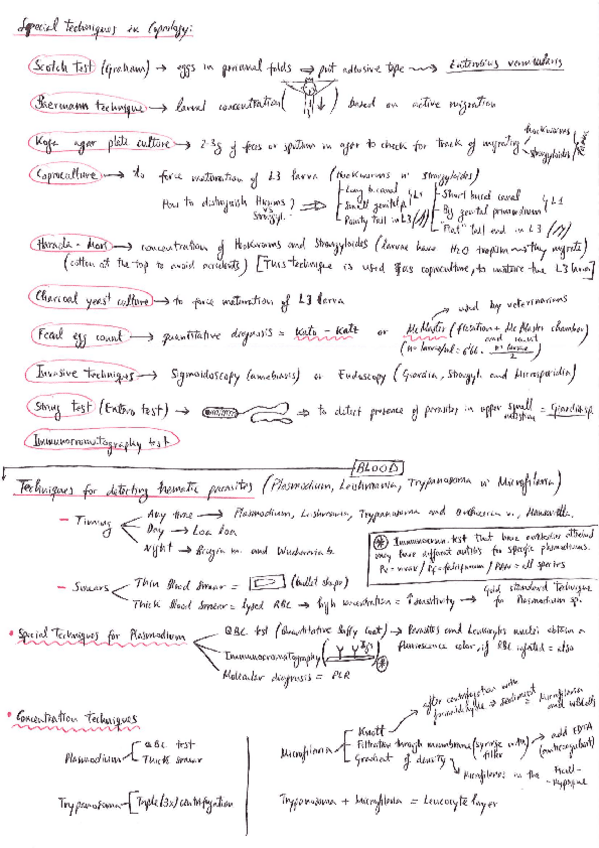 Special Techniques in Coprology:
Scotch test (Graham) → eggs in perianal folds → put adhesive tape → Enterobius vermicularis
Baermann technique → larval concentration ( ) based on active migration
Koga agar plate culture → 2-3g of feces or sputum in agar to check for track of migrating hookworms strongyloides
Coproculture → to force maturation of L3 larva (Hookworms n' strongyloides)
How to distinguish Hworms vs Strongyl. ? ⇒
Long b. canal
Small genital p.
Pointy tail in L3
L1
Short buccal canal
Big genital primordium
"Flat" tail end in L3
L1
Harada-Mori → concentration of Hookworms and Strongyloides (larvae have H2O tropism → they migrate)
(cotton at the top to avoid accidents) [This technique is used as coproculture, to mature the L3 larva]
Charcoal yeast culture → to force maturation of L3 larva
used by veterinarians
Fecal egg count → quantitative diagnosis = Kato-Katz or McMaster (flotation + McMaster chamber)
and count
Invasive techniques → Sigmoidoscopy (amebiasis) or Endoscopy (Giardia, Strongyl. and Microsporidia)
String test (Entero test) → ⇒ to detect presence of parasites in upper small intestine = Giardia sp.
Immunocromatography test
BLOOD
Techniques for detecting hematic parasites (Plasmodium, Leishmania, Trypanosoma n' Microfilaria)
- Timing
Any time → Plasmodium, Leishmania, Trypanosoma and Onchocerca v., Mansonella
Day → Loa loa
Night → Brugia m. and Wuchereria b.
* Immunocrom. test that have antibodies attached
may have different antibds for specific plasmodiums.
Pv = vivax / Pf = falciparum / Pan = all species
- Smears
Thin Blood Smear = (bullet shape)
Thick Blood Smear = lysed RBC → high concentration = ↑ sensitivity → Gold standard technique for Plasmodium sp.
• Special Techniques for Plasmodium
QBC test (Quantitative Buffy Coat) → Parasites and Leukocytes nuclei obtain a
fluorescence color, if RBC infected = also
Immunocromatography ( Igs ) *
Molecular diagnosis = PCR
• Concentration Techniques
Plasmodium
QBC test
Thick smear
Trypanosoma - [Triple (3x) centrifugation
Microfilaria
Knott
after centrifugation with formaldehyde → sediment = Microfilaria and WBCells
Filtration through membrane (syringe with filter) → add EDTA (anticoagulant)
Gradient of density → Microfilarias in the Ficoll-Hypaque
Trypanosoma + Microfilaria = Leucocyte layer